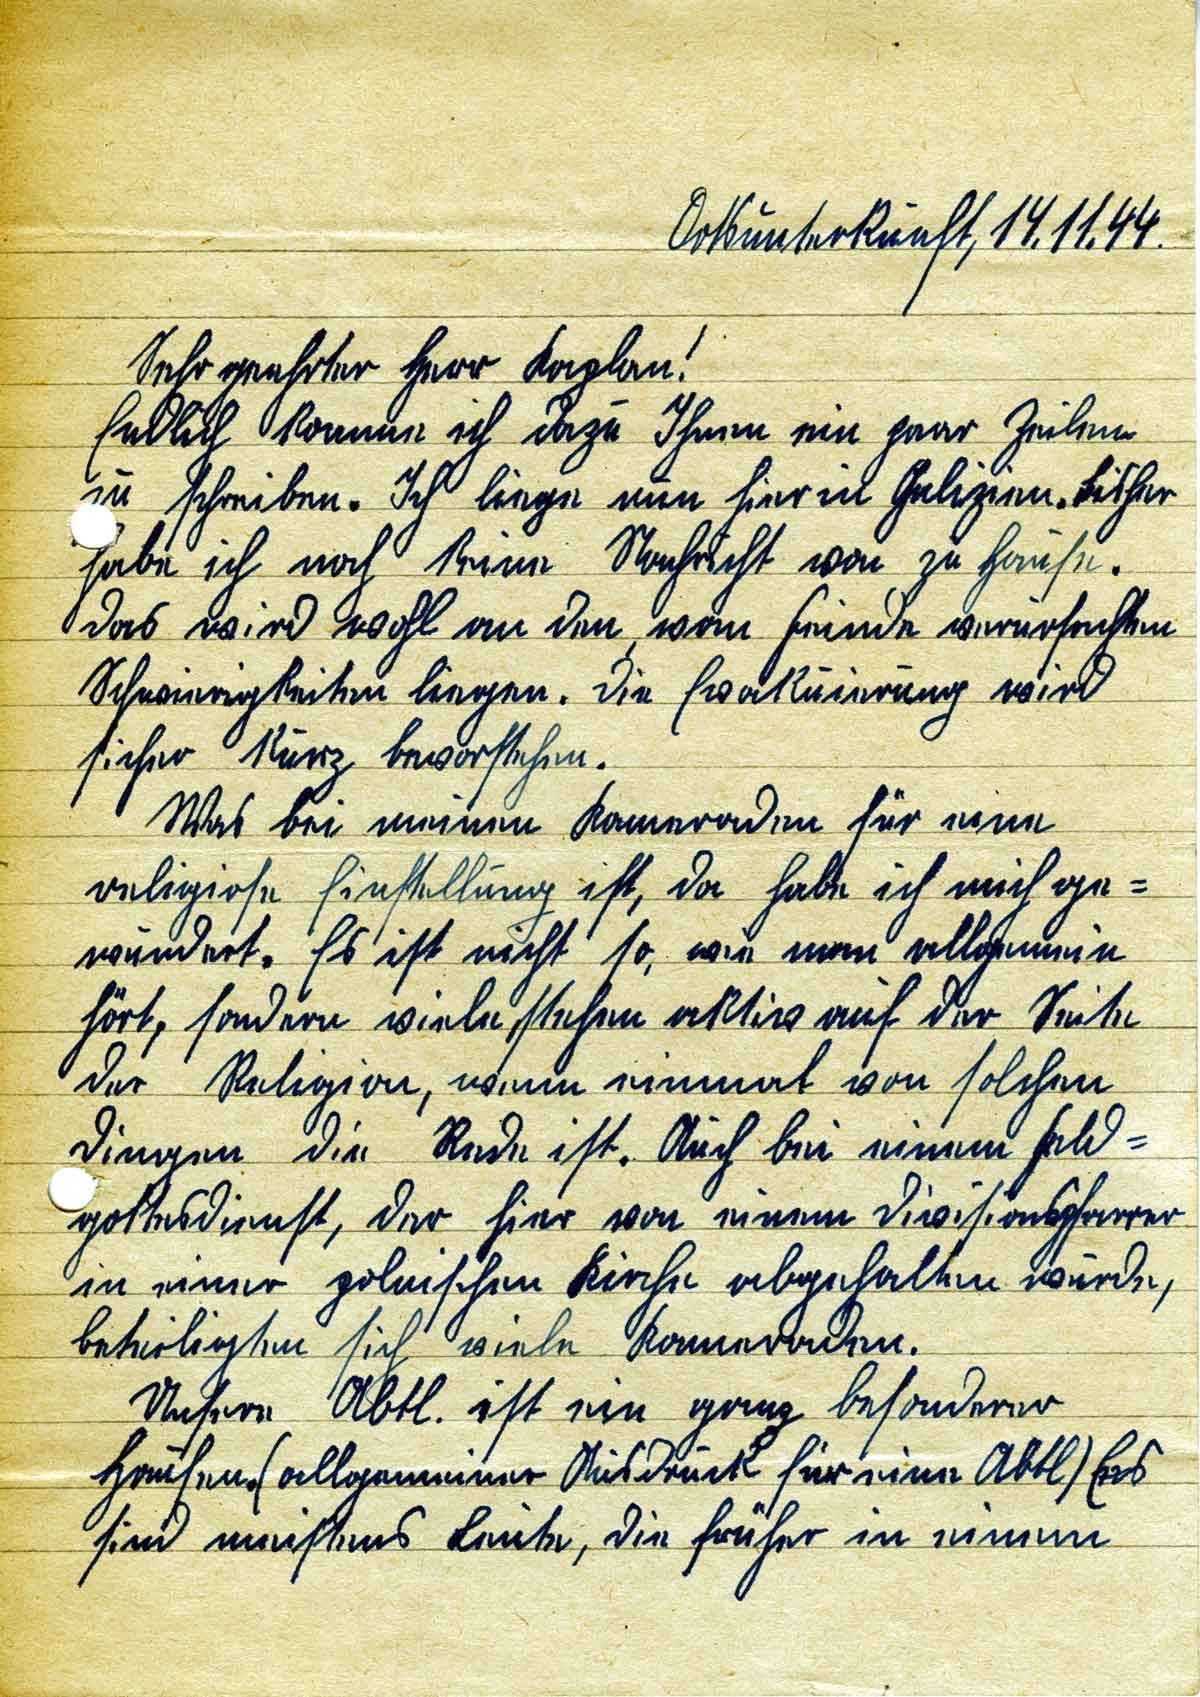 Ortsunterkunft, 14.11.44.
Sehr geehrter Herr Kaplan!
Endlich komme ich dazu Ihnen ein paar Zeilen
zu schreiben. Ich liege nun hier in Galizien. Bisher
habe ich noch keine Nachricht von zu Hause.
Das wird wohl an den, vom Feinde verursachten
Schwierigkeiten liegen. Die Evakuierung wird
sicher kurz bevorstehen.
Was bei meinen Kameraden für eine
religiose Einstellung ist, da habe ich mich ge=
wundert. Es ist nicht so, wie man allgemein
hört, sondern viele stehen aktiv auf der Seite
der Religion, wenn einmal von solchen
Dingen die Rede ist. Auch bei einem Feld=
gottesdienst, der hier von einem Divisionspfarrer
in einer polnischen Kirche abgehalten wurde,
beteiligten sich viele Kameraden.
Unsere Abtl. ist ein ganz besonderer
Haufen. (allgemeiner Ausdruck für eine Abtl) Es
sind meistens Leute, die früher in einem